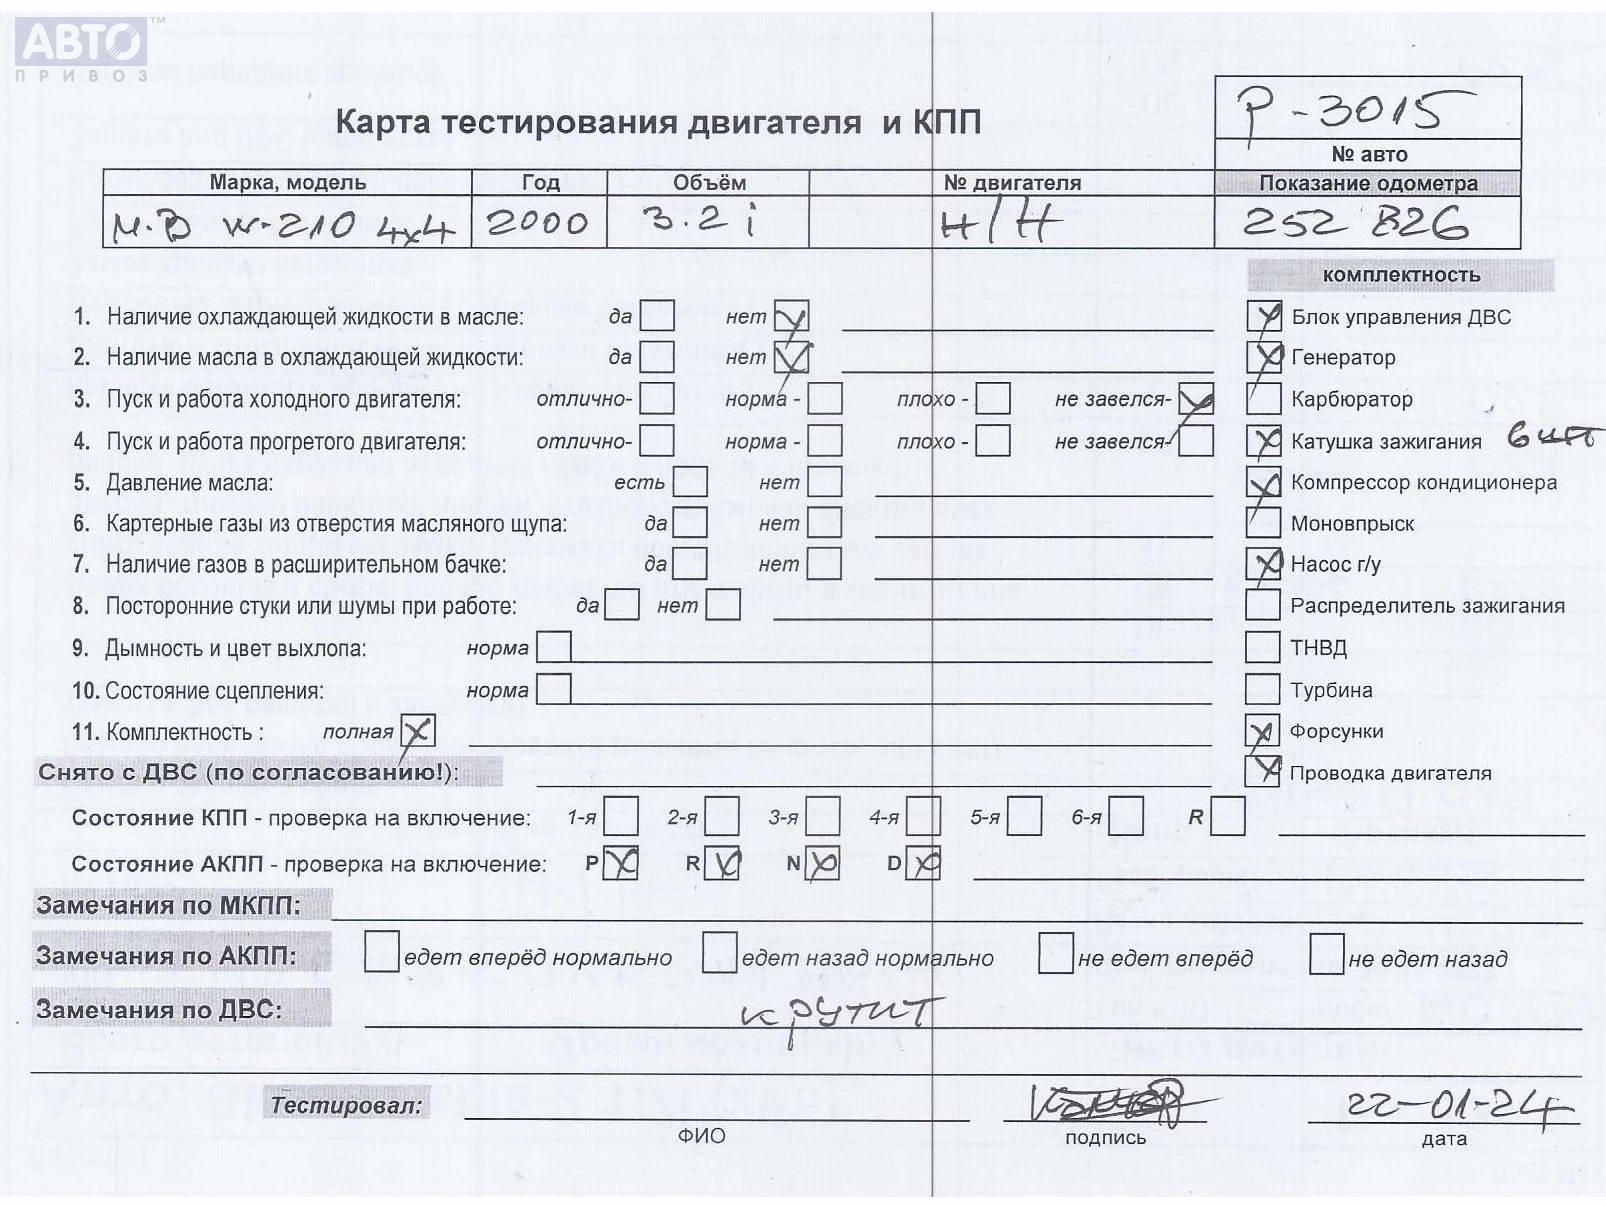 АВТО ™
ПРИВОЗ
Р-3015
Карта тестирования двигателя и КПП
№ авто
Марка, модель Год Объём № двигателя Показание одометра
М.В W-210 4x4 2000 3.2 i Н/Н 252 826
комплектность
1. Наличие охлаждающей жидкости в масле: да нет Блок управления ДВС
2. Наличие масла в охлаждающей жидкости: да нет Генератор
3. Пуск и работа холодного двигателя: отлично- норма - плохо - не завелся- Карбюратор
4. Пуск и работа прогретого двигателя: отлично- норма - плохо - не завелся- Катушка зажигания 6 шт
5. Давление масла: есть нет Компрессор кондиционера
6. Картерные газы из отверстия масляного щупа: да нет Моновпрыск
7. Наличие газов в расширительном бачке: да нет Насос г/у
8. Посторонние стуки или шумы при работе: да нет Распределитель зажигания
9. Дымность и цвет выхлопа: норма ТНВД
10. Состояние сцепления: норма Турбина
11. Комплектность : полная Форсунки
Снято с ДВС (по согласованию!): Проводка двигателя
Состояние КПП - проверка на включение: 1-я 2-я 3-я 4-я 5-я 6-я R
Состояние АКПП - проверка на включение: P R N D
Замечания по МКПП:
Замечания по АКПП: едет вперёд нормально едет назад нормально не едет вперёд не едет назад
Замечания по ДВС: крутит
Тестировал: 22-01-24
ФИО подпись дата